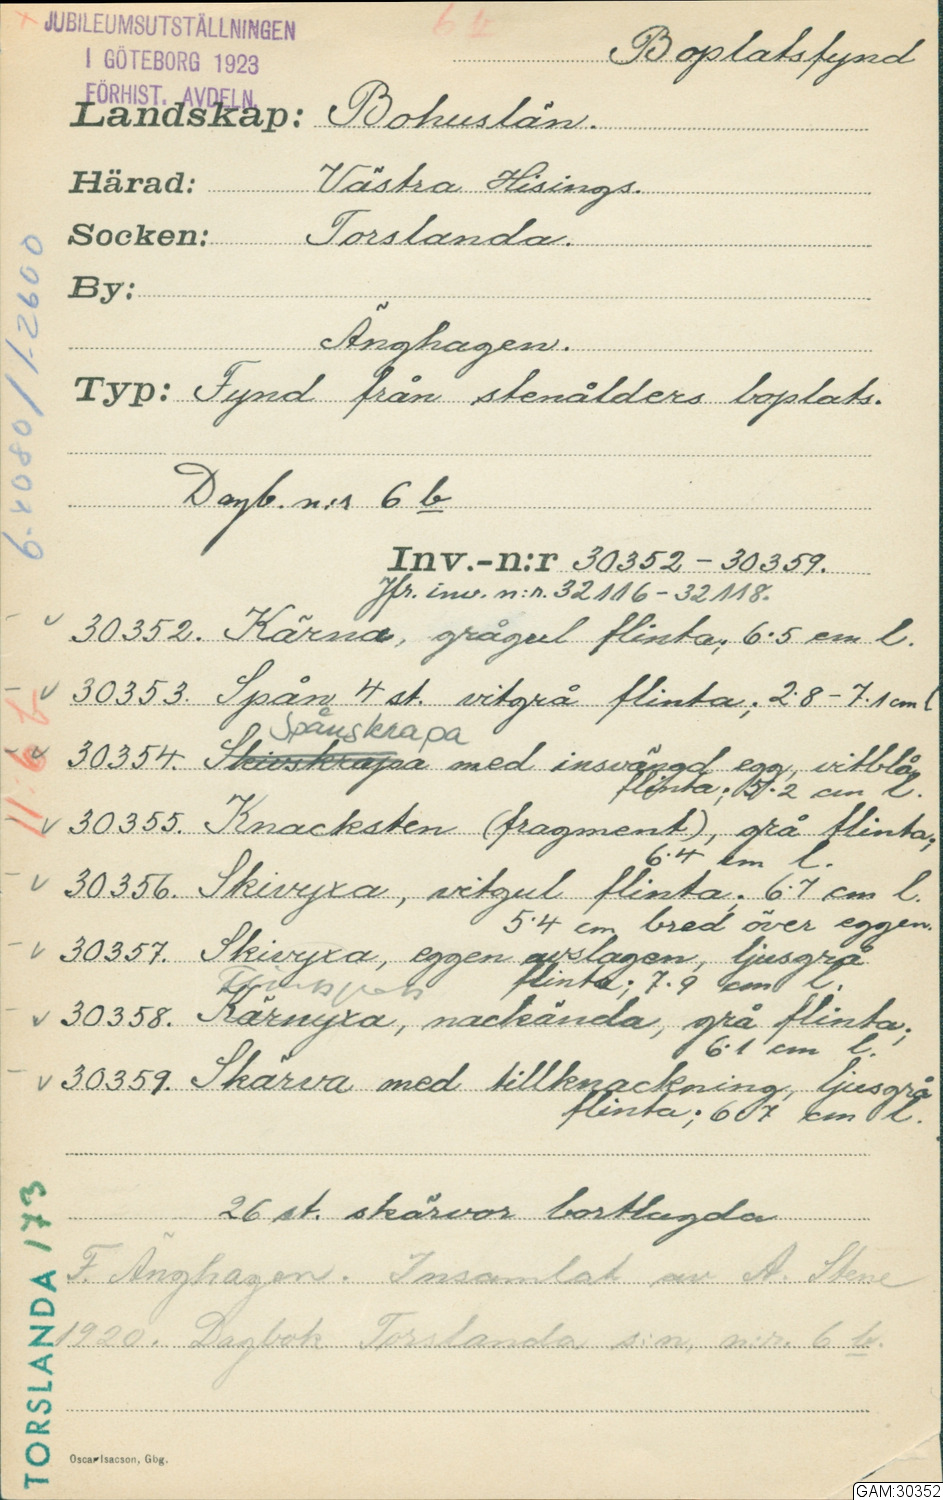 JUBILEUMSUTSTÄLLNINGEN
I GÖTEBORG 1923
FÖRHIST. AVDELN.
6 b
Boplatsfynd
Landskap: Bohuslän.
Härad: Västra Hisings.
Socken: Torslanda.
By:
Änghagen.
Typ: Fynd från stenålders boplats.
Dagb. n:r 6 b
Inv.-n:r 30352 – 30359.
Jfr. inv. n:r. 32116 – 32118.
30352. Kärna, grågul flinta; 6.5 cm l.
30353. Spån 4 st. vitgrå flinta; 2.8 – 7.1 cm l
Spånskrapa
30354. Skivskrapa med insvängd egg, vitblå
flinta; 5.2 cm l.
30355. Knacksten (fragment), grå flinta;
6.4 cm l.
30356. Skivyxa, vitgul flinta; 6.7 cm l.
5.4 cm bred över eggen.
30357. Skivyxa, eggen avslagen, ljusgrå
flinta; 7.9 cm l.
30358. Kärnyxa, nackända, grå flinta;
6.1 cm l.
30359. Skärva med tillknackning, ljusgrå
flinta; 6.7 cm l.
26 st. skärvor bortlagda
F. Änghagen. Insamlat av A. Stene
1920. Dagbok Torslanda s:n, n:r. 6 b.
Oscar Isacson, Gbg.
TORSLANDA 173
GAM:30352